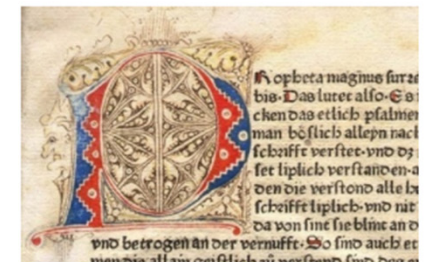 Propheta magnus surre
bis. Das lutet also. Es
cken das etlich psalmen
man böslich alleyn nach
schrifft verstet. vnd dz
set liplich verstanden.
den die verstond alle
schrifft liplich. vnd nit
da von sint sie blint an d
vnd betrogen an der vernufft. So sind auch et